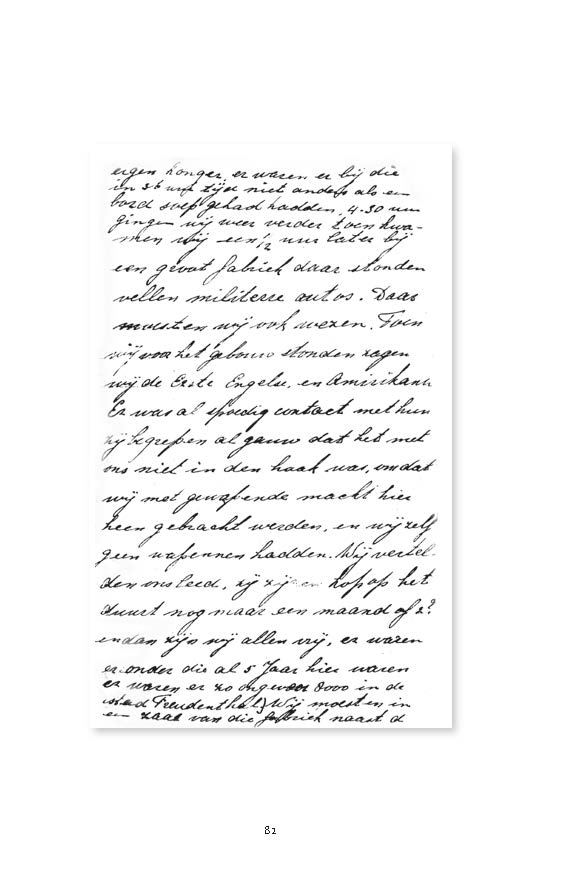 ergen honger, er waren er bij die
in 36 uur tijd niet anders als een
bord soep gehad hadden, 4.30 uur
gingen wij weer verder toen kwa-
men wij een 1/2 uur later bij
een groot fabriek daar stonden
vellen militerre autos. Daar
moesten wij ook wezen. Toen
wij voor het gebouw stonden zagen
wij de Eerste Engelse, en Amirikan
Er was al spoedig contact met hun
zij begrepen al gauw dat het met
ons niet in den haak was, omdat
wij met gewapende macht hier
heen gebracht werden, en wij zelf
geen wapennen hadden. Wij vertel-
den ons leed, zij hop op het
duurt nog maar een maand of 2?
en dan zijn wij allen vrij, er waren
er onder die al 5 Jaar hier waren
er waren er zo ongeveer 8000 in de
stad Freudenthal) Wij moesten in
een zaal van die fabriek naast d
82